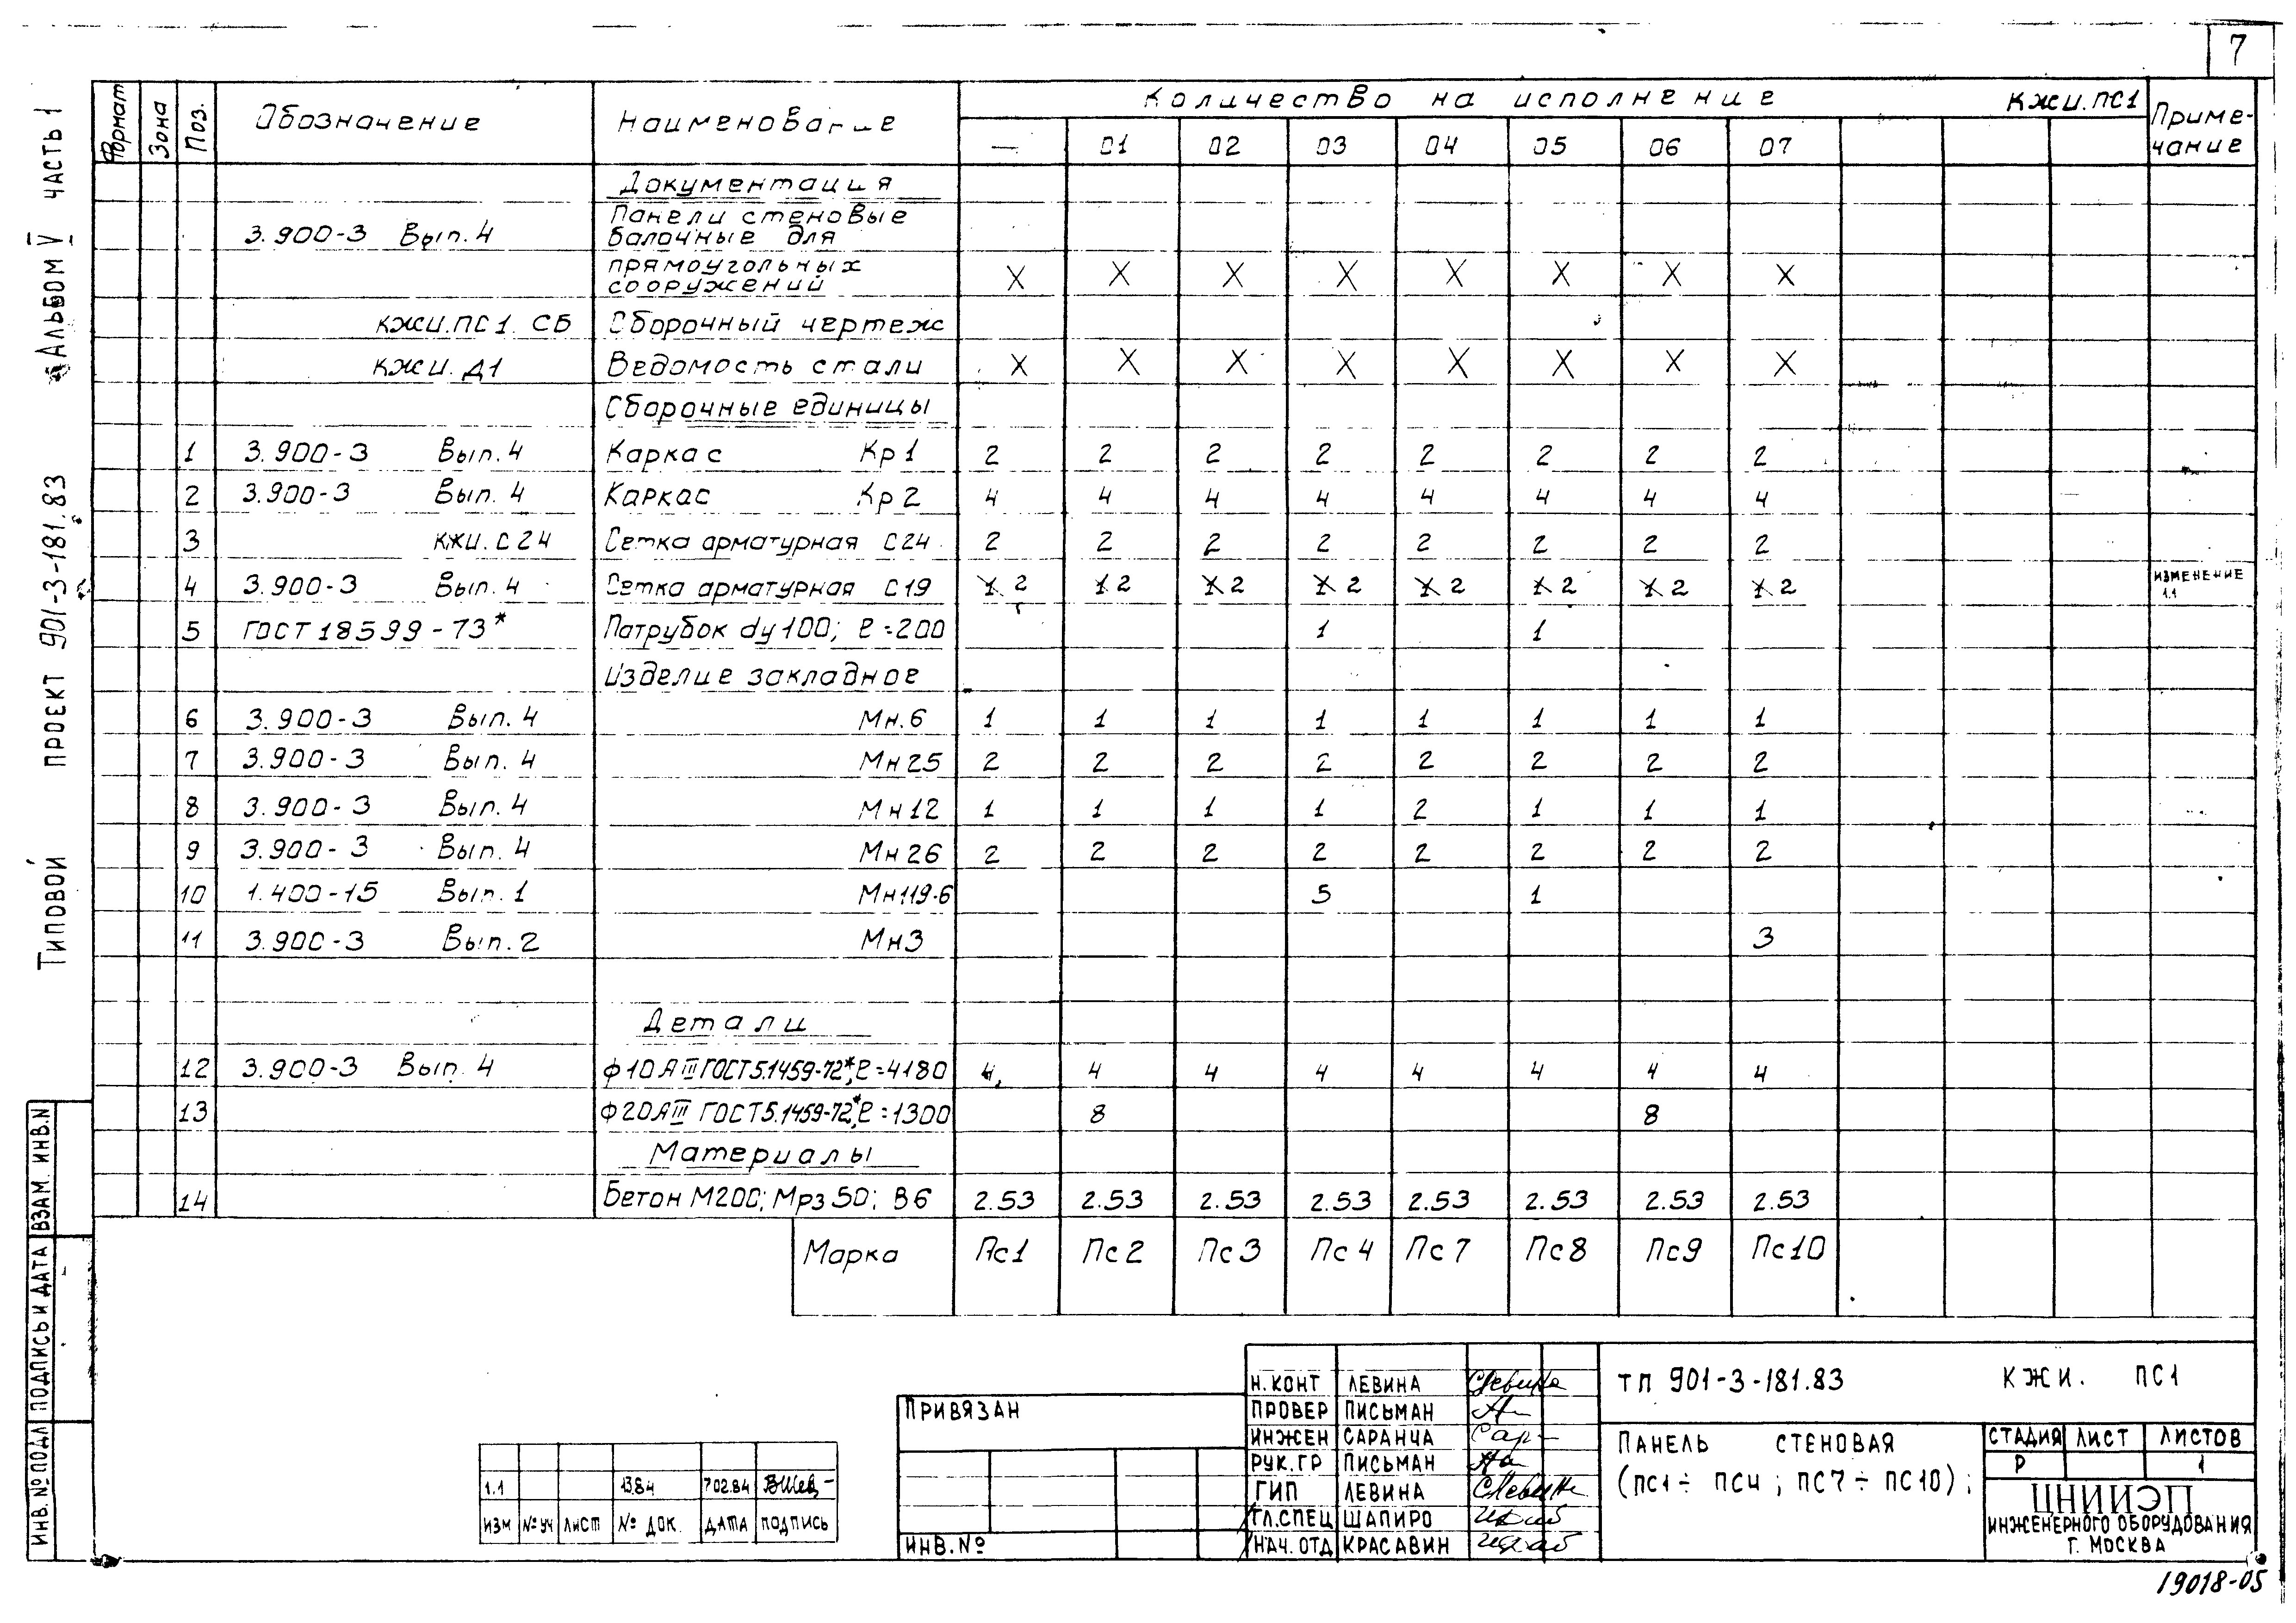 7
Типовой проект 901-3-181.83 Альбом V часть 1
Формат Зона Поз. Обозначение Наименование Количество на исполнение КЖИ.ПС1 Приме-
чание
— 01 02 03 04 05 06 07
Документация
3.900-3 Вып. 4 Панели стеновые
балочные для
прямоугольных
сооружений X X X X X X X X
КЖИ.ПС1. СБ Сборочный чертеж
КЖИ. Д1 Ведомость стали X X X X X X X X
Сборочные единицы
1 3.900-3 Вып. 4 Каркас Кр1 2 2 2 2 2 2 2 2
2 3.900-3 Вып. 4 Каркас Кр2 4 4 4 4 4 4 4 4
3 КЖИ. С24 Сетка арматурная С24 2 2 2 2 2 2 2 2
4 3.900-3 Вып. 4 Сетка арматурная С19 2 2 2 2 2 2 2 2 ИЗМЕНЕНИЕ
1.1
5 ГОСТ 18599-73* Патрубок dу100; ℓ=200 1 1
Изделие закладное
6 3.900-3 Вып. 4 Мн.6 1 1 1 1 1 1 1 1
7 3.900-3 Вып. 4 Мн25 2 2 2 2 2 2 2 2
8 3.900-3 Вып. 4 Мн12 1 1 1 1 2 1 1 1
9 3.900-3 Вып. 4 Мн26 2 2 2 2 2 2 2 2
10 1.400-15 Вып. 1 Мн119-6 5 1
11 3.900-3 Вып. 2 Мн3 3
Детали
12 3.900-3 Вып. 4 ф10АIII ГОСТ5.1459-72*, ℓ=4180 4 4 4 4 4 4 4 4
13 ф20АIII ГОСТ5.1459-72*, ℓ=1300 8 8
Материалы
14 Бетон М200; Мрз 50; В6 2.53 2.53 2.53 2.53 2.53 2.53 2.53 2.53
Марка Пс1 Пс2 Пс3 Пс4 Пс7 Пс8 Пс9 Пс10
ИНВ. № ПОДЛ ПОДПИСЬ И ДАТА ВЗАМ. ИНВ. N
1.1 1384 7.02.84
ИЗМ № УЧ ЛИСТ № ДОК. ДАТА ПОДПИСЬ
ПРИВЯЗАН
ИНВ. №
Н. КОНТ ЛЕВИНА
ПРОВЕР ПИСЬМАН
ИНЖЕН САРАНЧА
РУК. ГР ПИСЬМАН
ГИП ЛЕВИНА
ГЛ. СПЕЦ ШАПИРО
НАЧ. ОТД КРАСАВИН
ТП 901-3-181.83 КЖИ. ПС1
ПАНЕЛЬ СТЕНОВАЯ
(ПС1÷ ПС4; ПС7÷ ПС10);
СТАДИЯ ЛИСТ ЛИСТОВ
Р 1
ЦНИИЭП
ИНЖЕНЕРНОГО ОБОРУДОВАНИЯ
Г. МОСКВА
19018-05